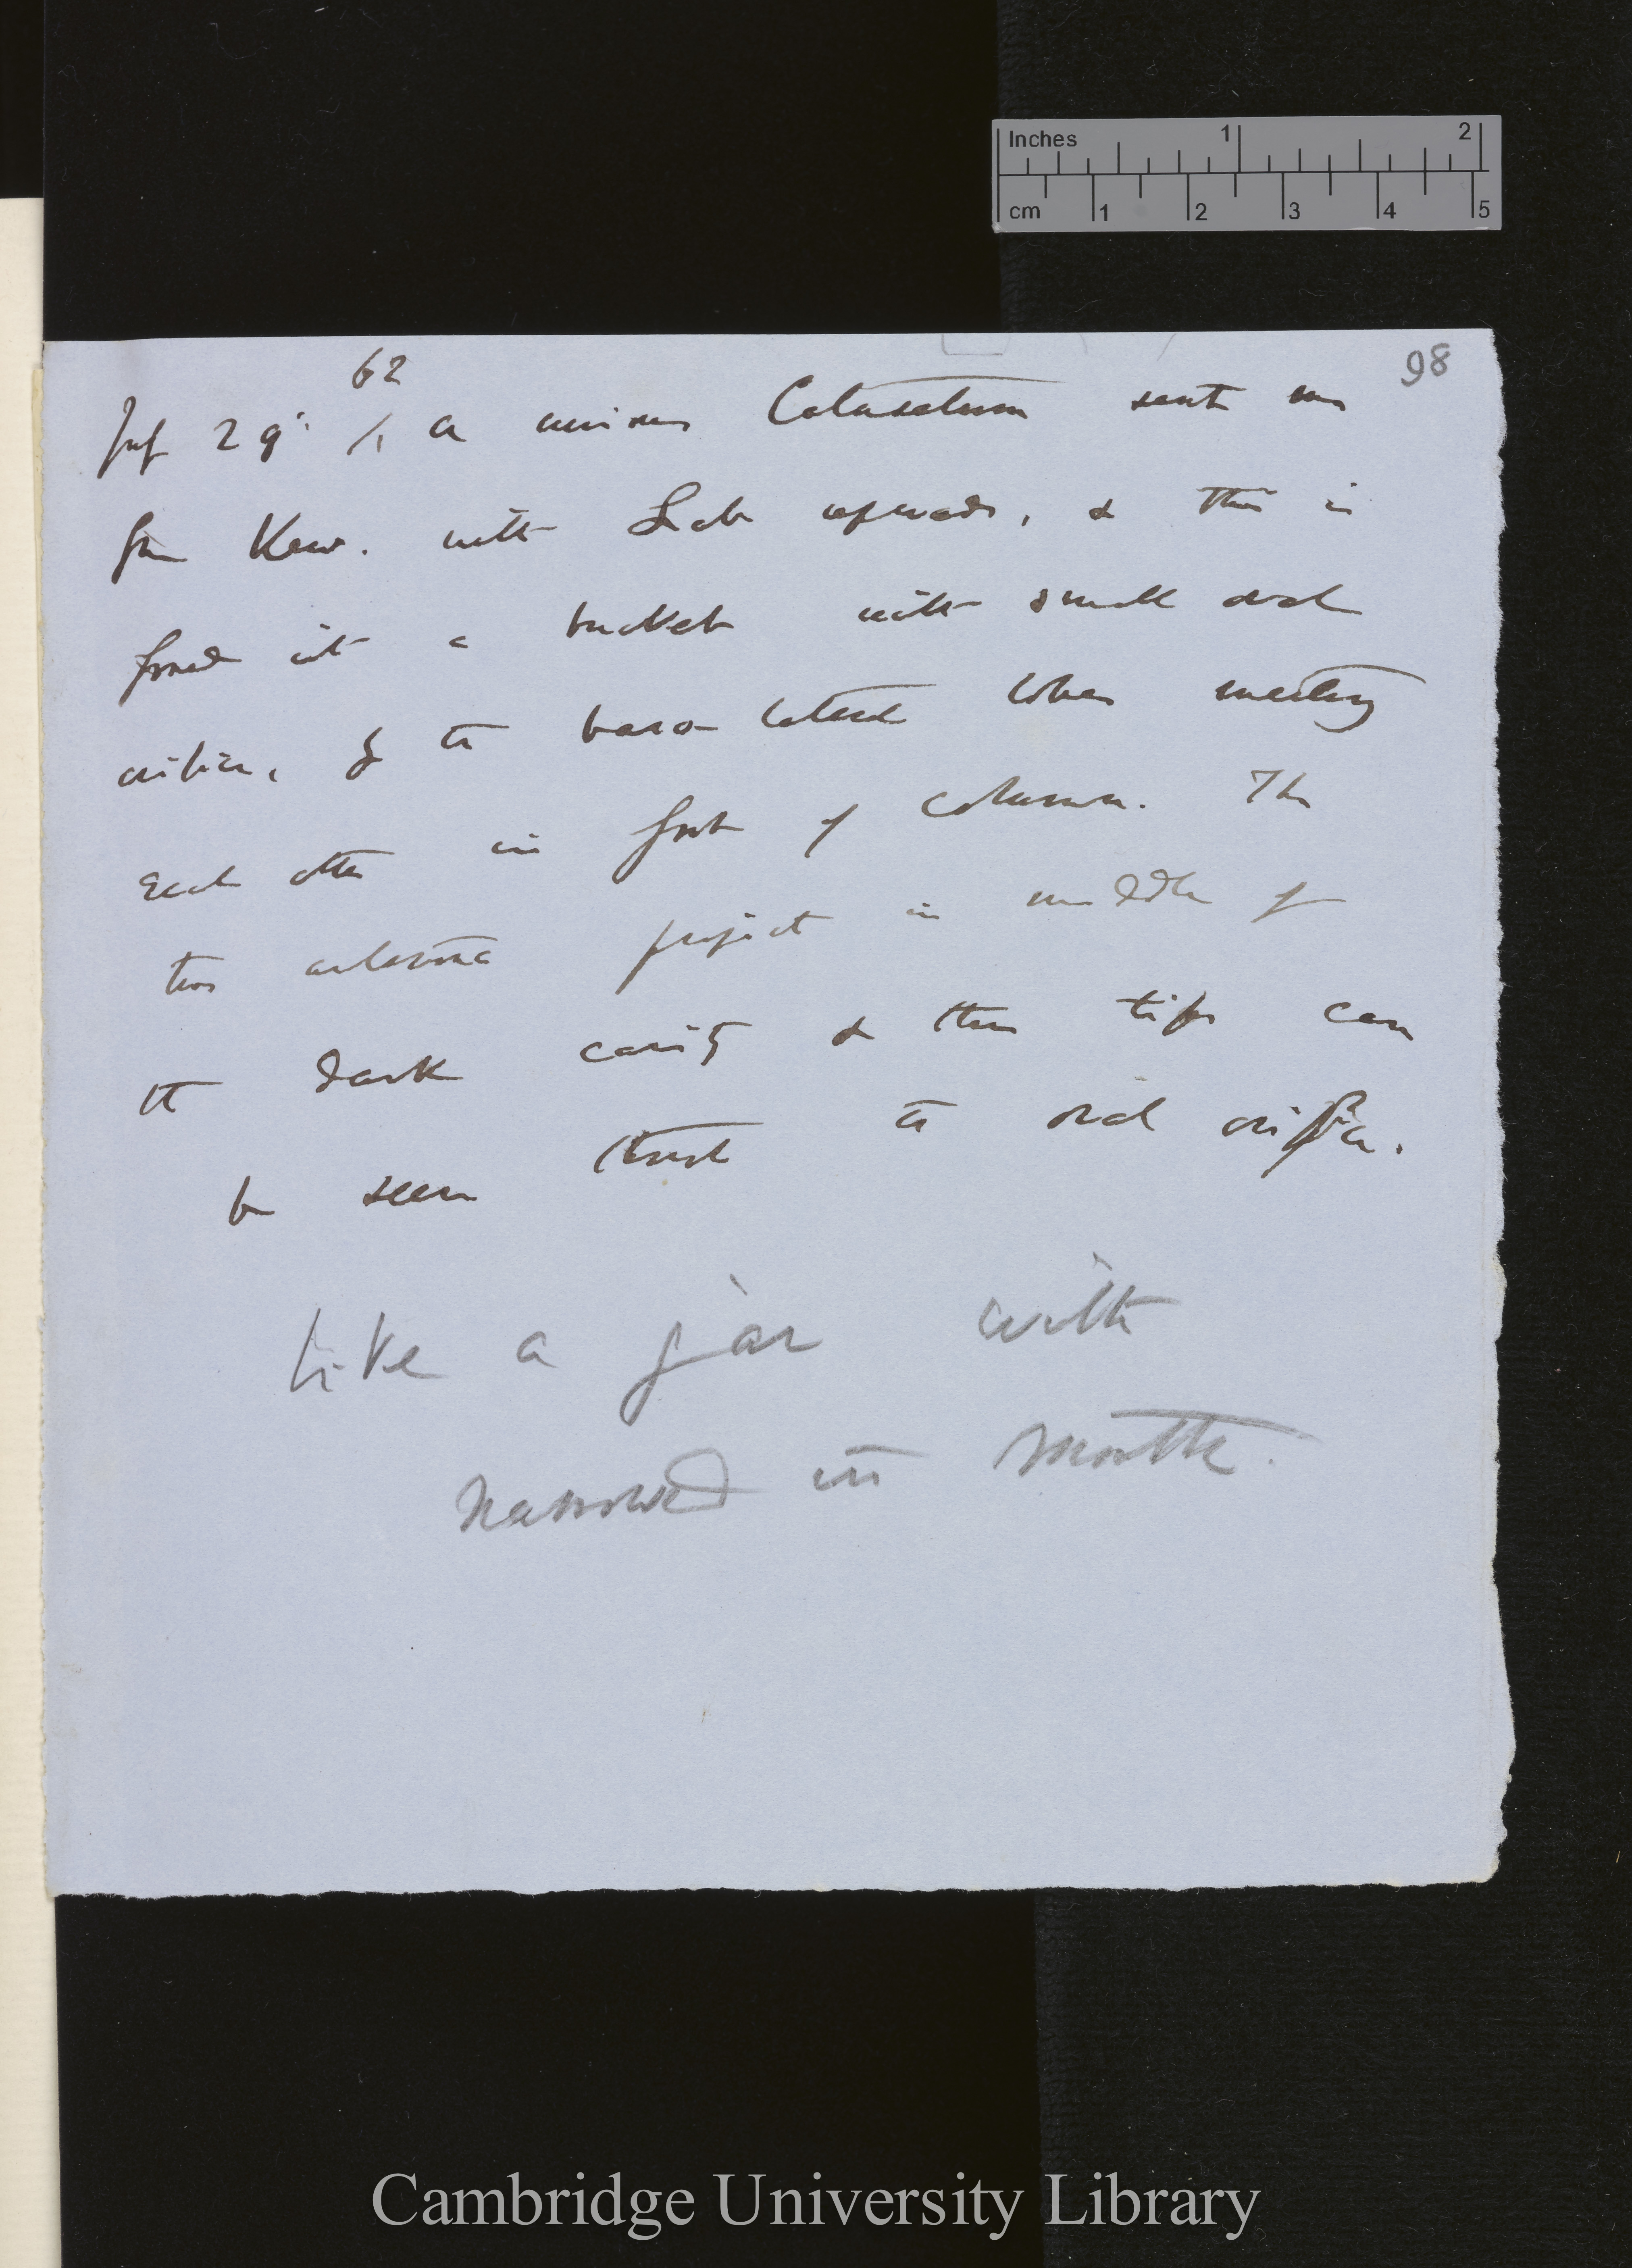 Inches 1 2
cm 1 2 3 4 5
98
62
July 29. /, a curious Catasetum sent me
from Kew. with Lab upwards, & this is
formed into a bucket with small oval
orifice, the baso-lateral lobes meeting
each other in front of column. The
two antennæ project in middle of
the dark cavity & their tips can
be seen through the oval orifice.
like a jar with
narrowed in mouth.
Cambridge University Library